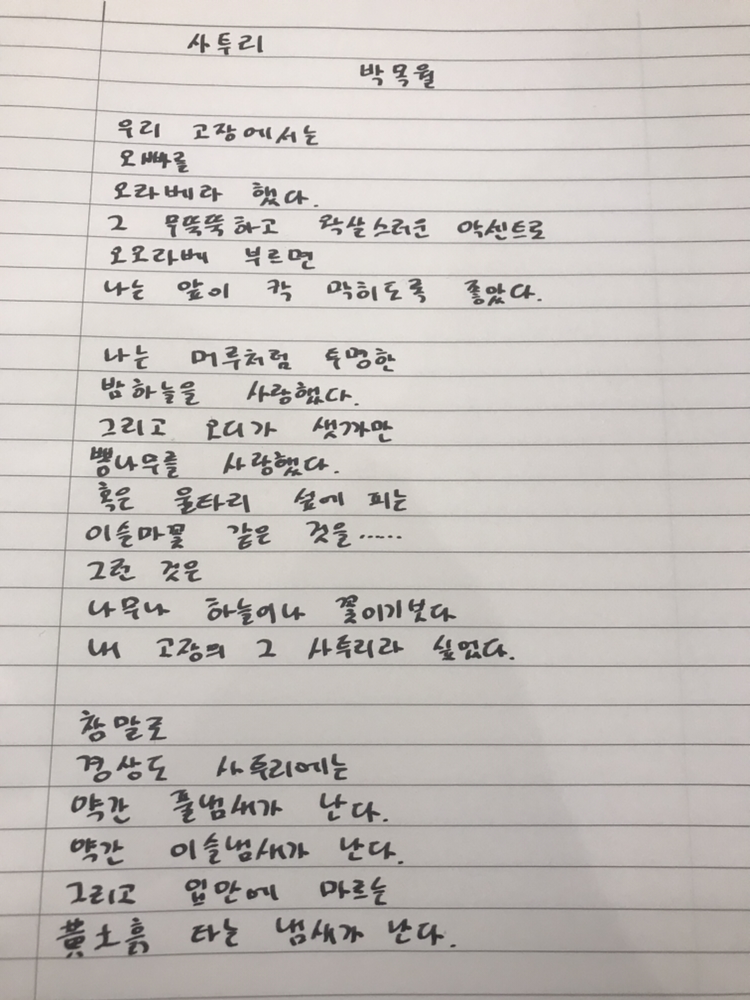 사투리
박목월
우리 고장에서는
오빠를
오라베라 했다.
그 무뚝뚝하고 왁살스러운 악센트로
오오라베 부르면
나는 앞이 칵 막히도록 좋았다.
나는 머루처럼 투명한
밤하늘을 사랑했다.
그리고 오디가 샛까만
뽕나무를 사랑했다.
혹은 울타리 섶에 피는
이슬마꽃 같은 것을......
그런 것은
나무나 하늘이나 꽃이기보다
내 고장의 그 사투리라 싶었다.
참말로
경상도 사투리에는
약간 풀냄새가 난다.
약간 이슬냄새가 난다.
그리고 입안에 마르는
黃土흙 타는 냄새가 난다.